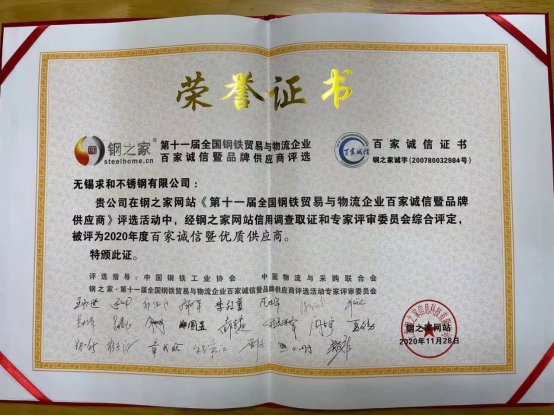 荣誉证书
钢之家®
steelhome.cn
第十一届全国钢铁贸易与物流企业
百家诚信暨品牌供应商评选
百家诚信
百家诚信证书
钢之家诚字(200780032984号)
无锡求和不锈钢有限公司：
贵公司在钢之家网站《第十一届全国钢铁贸易与物流企业百家诚信暨品牌
供应商》评选活动中，经钢之家网站信用调查取证和专家评审委员会综合评定，
被评为2020年度百家诚信暨优质供应商。
特颁此证。
评选指导：中国钢铁工业协会 中国物流与采购联合会
钢之家·第十一届全国钢铁贸易与物流企业百家诚信暨品牌供应商评选活动专家评审委员会
钢之家网站
2020年11月28日